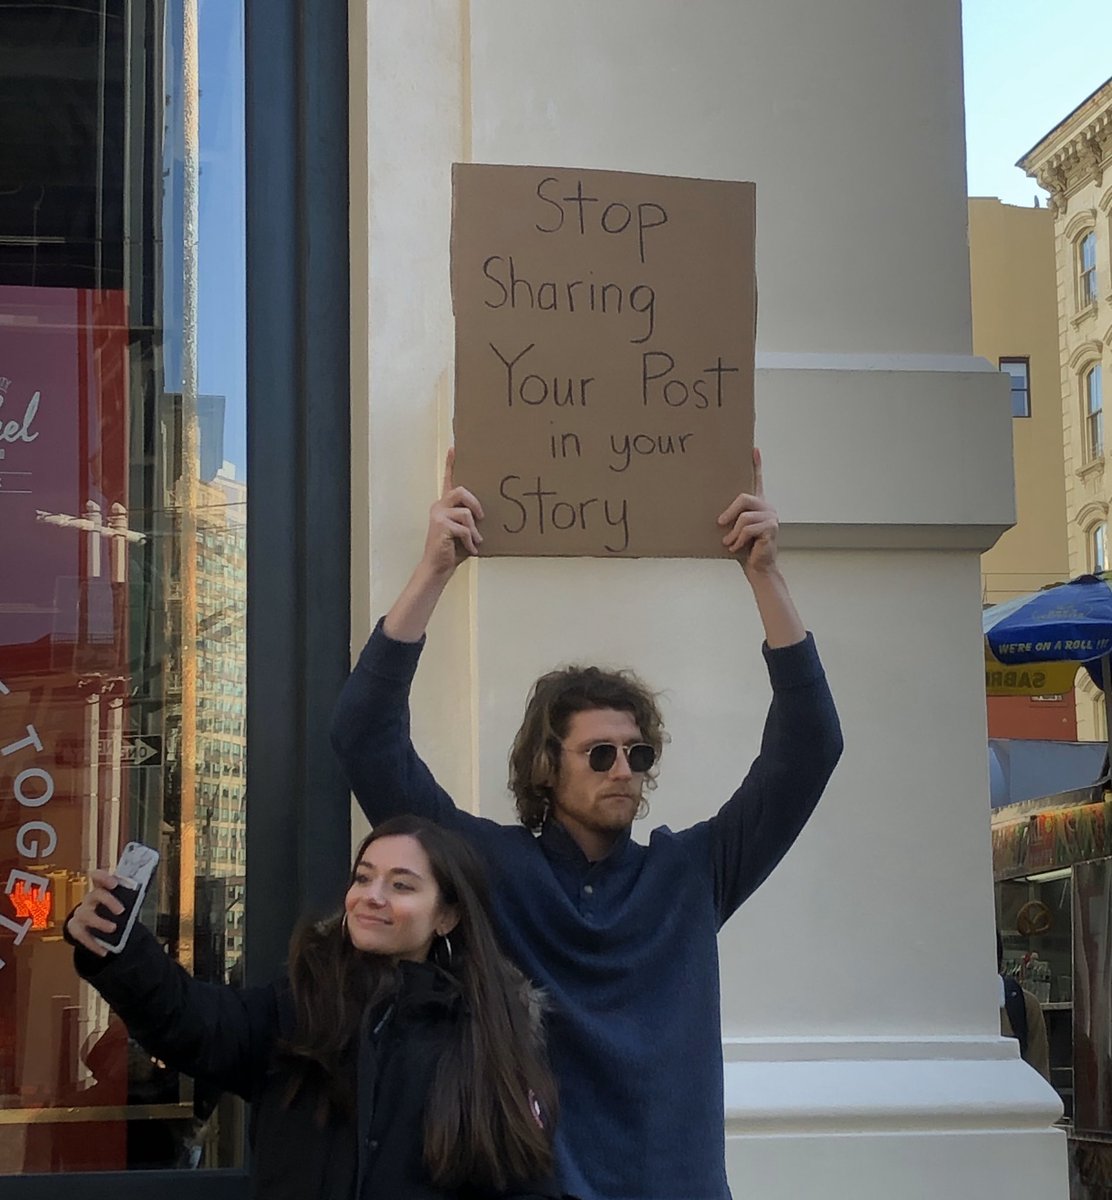 Stop
Sharing
Your Post
in your
Story
WE'RE ON A ROLL
TOGET